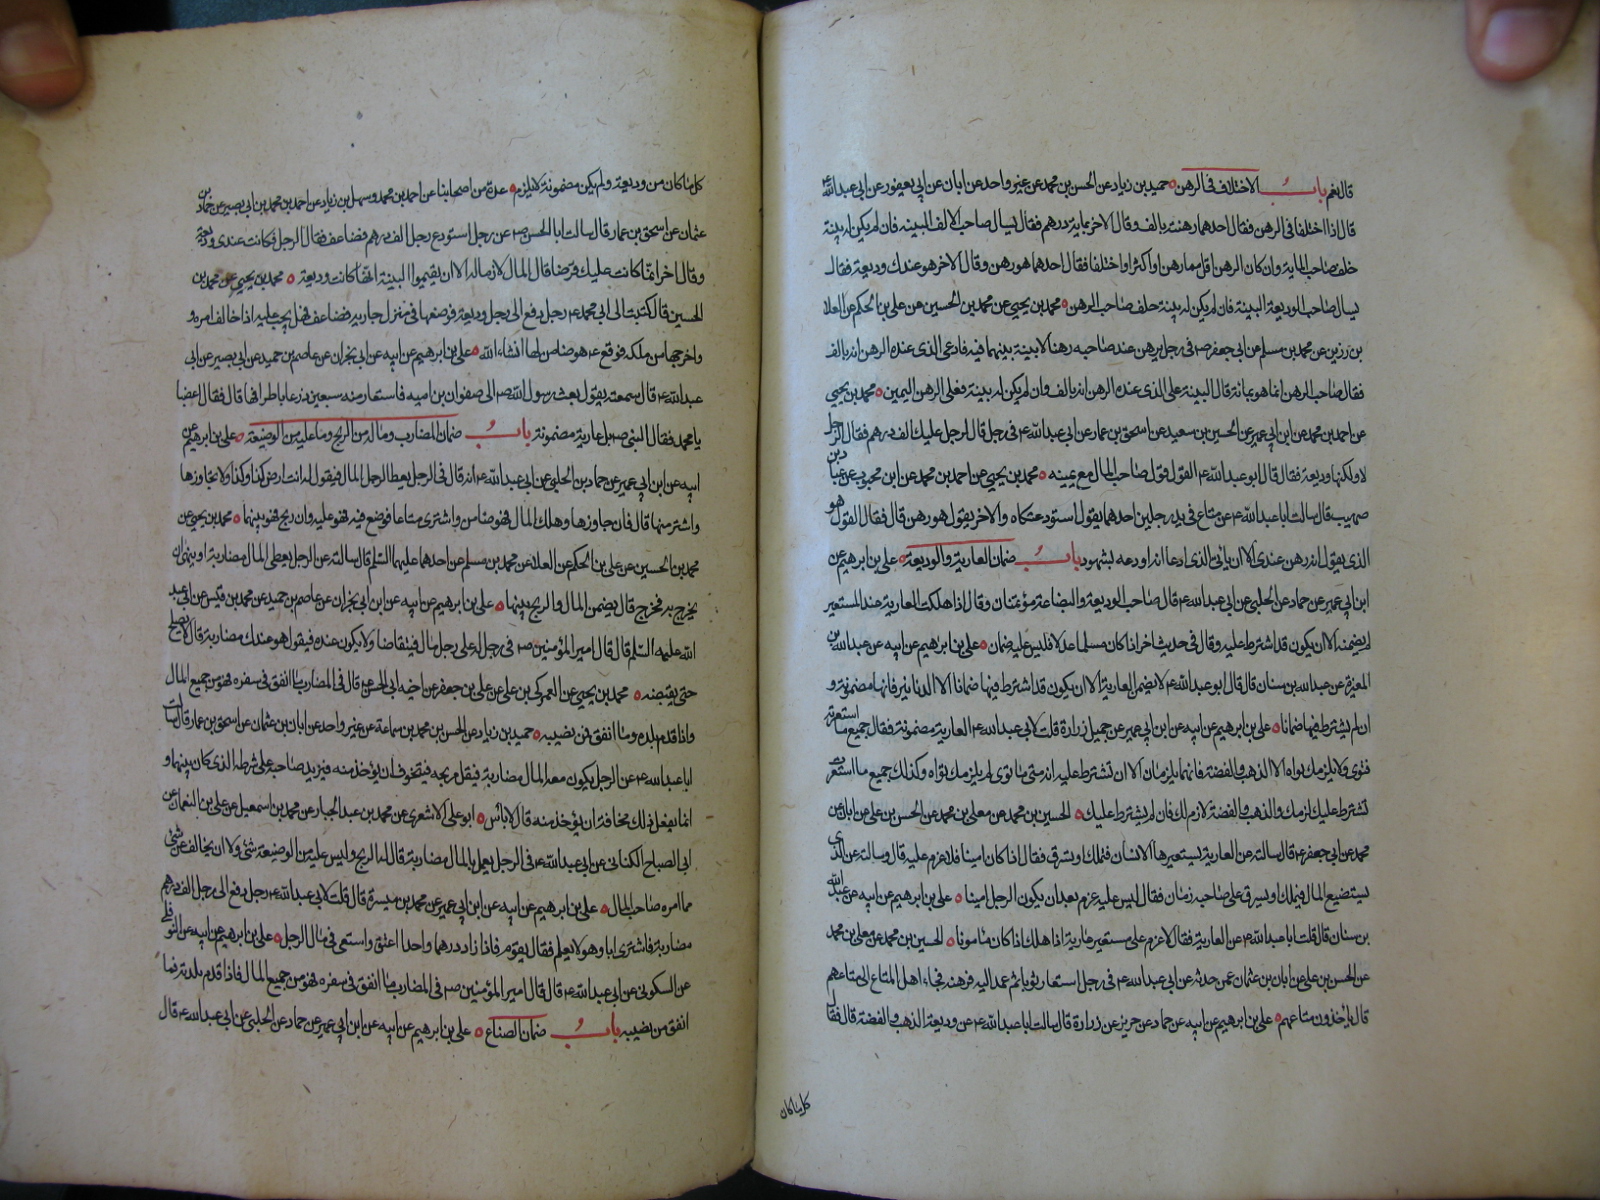 قال نعم باب الاختلاف فى الرهن حميد بن زياد عن الحسن بن محمد عن غير واحد عن ابان عن ابى يعفور عن ابى عبد الله ع
قال اذا اختلفا فى الرهن فقال احدهما رهنته بالف وقال الاخر بماية درهم فقال يسال صاحب الالف البينه فان لم يكن له بينة
حلف صاحب الماية وان كان الرهن اقل مما رهن او اكثر او اختلفا فقال احدهما هو رهن وقال الاخر هو عندك وديعة فقال
يسال صاحب الوديعة البينة فان لم يكن له بينة حلف صاحب الرهن محمد بن يحيى عن محمد بن الحسين عن على بن الحكم عن العلا
بن رزين عن محمد بن مسلم عن ابى جعفر ع فى رجل يرهن عند صاحبه رهنا لا بينة بينهما فيه فادعى الذى عنده الرهن انه بالف
فقال صاحب الرهن انما هو بماية قال البينة على الذى عنده الرهن انه بالف وان لم يكن له بينة فعلى الرهن اليمين محمد بن يحيى
عن احمد بن محمد عن ابن ابى عمير عن الحسين بن سعيد عن اسحق بن عمار عن ابى عبد الله ع فى رجل قال لرجل عليك الف درهم فقال الرجل
لا ولكنها وديعة فقال قال ابو عبد الله ع القول قول صاحب المال مع يمينه محمد بن يحيى عن احمد بن محمد عن ابن محبوب عن عباد بن
صهيب قال سالت ابا عبد الله ع عن متاع فى يد رجلين احدهما يقول استودعتكاه والاخر يقول هو رهن قال فقال القول هو
الذى يقول انه رهن عندى الا ان ياتى الذى ادعا انه اودعه بشهود باب ضمان العارية والوديعة على بن ابرهيم عن
ابن ابى عمير عن حماد عن الحلبى عن ابى عبد الله ع قال صاحب الوديعة والبضاعة مؤتمنان وقال اذا هلكت العارية عند المستعير
لم يضمنه الا ان يكون قد اشترط عليه وقال فى حديث اخر اذا كان مسلما عدلا فليس عليه ضمان على بن ابرهيم عن ابيه عن عبد الله بن
المغيرة عن عبد الله بن سنان قال قال ابو عبد الله ع لا يضمن العارية الا ان يكون قد اشترط فيها ضمانا الا الدنانير فانها مضمونة و
ان لم يشترط فيها ضمانا على بن ابرهيم عن ابيه عن ابن ابى عمير عن جميل زرارة قلت لابى عبد الله ع العارية مضمونة فقال جميع ما استعرته
فتوى ولا يلزمك تواه الا الذهب والفضة فانهما يلزمان الا ان تشترط عليه انه متى ما توى لم يلزمك تواه وكذلك جميع ما استعرت
تشترط عليك لزمك والذهب والفضة لازم لك فان لم يشترط عليك الحسين بن محمد عن معلى بن محمد عن الحسن بن على عن ابان عن
محمد عن ابى جعفر ع قال سالته عن العارية يستعيرها الانسان فتهلك او يسرق فقال اذا كان امينا فلا غرم عليه قال وسالته عن الذى
يستبضع المال فيهلك او يسرق على صاحبه ضمان فقال ليس عليه غرم بعد ان يكون الرجل امينا على بن ابرهيم عن ابيه عن عبد الله
بن سنان قال قلت ابا عبد الله ع عن العارية فقال لا غرم على مستعير عارية اذا هلك اذا كان مامونا الحسين بن محمد عن معلى بن محمد
عن الحسن بن على عن ابان بن عثمان عمن حدثه عن ابى عبد الله ع فى رجل استعار ثوبا ثم عمد اليه فرهنه فجاء اهل المتاع الى متاعهم
قال ياخذون متاعهم على بن ابرهيم عن ابيه عن حماد عن حريز عن زرارة قال سالت ابا عبد الله ع عن وديعة الذهب والفضة قال فقال
كل ما كان
كل ما كان من وديعة ولم يكن مضمونة لا يلزم عدة من اصحابنا عن احمد بن محمد وسهل بن زياد عن احمد بن محمد بن ابى بصير عن حماد بن
عثمان عن اسحق بن عمار قال سالت ابا الحسن ع عن رجل استودع رجل الف درهم فضاعف فقال الرجل فكانت عندى وديعة
وقال اخر انما كانت عليك قرضا قال المال لازم له الا ان يقيموا البينة انها كانت وديعة محمد بن يحيى عن محمد بن
الحسين قال كتبت الى ابى محمد ع رجل دفع الى رجل وديعة فوضعها فى منزل جاريه فضاعف فهل يجب عليه اذا خالف امره و
واخرجها من ملكه فوقع ع هو ضامن لها انشاء الله على بن ابرهيم عن ابيه عن ابى نجران عن عاصم بن حميد عن ابى بصير عن ابى
عبد الله ع قال سمعته يقول بعث رسول الله ص الى صفوان بن اميه فاستعار منه سبعين درعا باطراقها قال فقال اغصبا
يا محمد فقال النبى ص بل عارية مضمونة باب ضمان المضارب وماله من الربح وما عليه من الوضيعة على بن ابرهيم عن
ابيه عن ابن ابى عمير عن حماد بن الحلبى عن ابى عبد الله ع انه قال فى الرجل يعط الرجل المال فيقول له انت ارض كذا وكذا ولا تجاوزها
واشتر منها قال فان جاوزها وهلك المال فهو ضامن واشترى متاعا فوضع فيه فهو عليه وان ربح فهو بينهما محمد بن يحيى عن
محمد بن الحسين عن على بن الحكم عن العلا عن محمد بن مسلم عن احدهما عليهما السلم قال سالته عن الرجل يعطى المال مضاربة او ينهى ان
يخرج به فخرج قال يضمن المال والربح بينهما على بن ابرهيم عن ابيه عن ابن ابى نجران عن عاصم بن حميد عن محمد بن قيس عن ابى عبد
الله عليه السلم قال قال امير المؤمنين ص فى رجل له على رجل مال فيتقاضا ولا يكون عنده فيقول هو عندك مضاربة قال لا يصلح
حتى يقبضه محمد بن يحيى عن العمركى بن على عن على بن جعفر عن اخيه ابى الحسن ع قال فى المضارب ما انفق فى سفره فهو من جميع المال
واذا قدم بلده وما انفق فمن نصيبه حميد بن زياد عن الحسن بن محمد بن سماعة عن غير واحد عن ابان بن عثمان عن اسحق بن عمار قال سالت
ابا عبد الله ع عن الرجل يكون معه المال مضاربة فيقل ربحه فيتخوف ان يؤخذ منه فيزيد صاحبه على شرطه الذى كان بينهما و
انما يفعل ذلك مخافة ان يؤخذ منه قال لا باس ابو على الاشعرى عن محمد بن عبد الجبار عن محمد بن اسمعيل عن على بن النعمان عن
ابى الصباح الكنانى عن ابى عبد الله ع فى الرجل يعمل بالمال مضاربة قال له الربح وليس عليه من الوضيعة شئ ولا ان يخالف عن شئ
مما امره صاحب المال على بن ابرهيم عن ابيه عن ابن ابى عمير عن محمد بن ميسرة قال قلت لابى عبد الله ع رجل دفع الى رجل الف درهم
مضاربة فاشترى ابا وهو لا يعلم فقال يقوم فاذا زاد درهما واحدا اعتق واستعى فى مال الرجل على بن ابرهيم عن ابيه عن النوفلى
عن السكونى عن ابى عبد الله ع قال قال امير المؤمنين ص فى المضارب ما انفق فى سفره فهو من جميع المال فاذا قدم بلدته فما
انفق من نصيبه باب ضمان الصناع على بن ابرهيم عن ابيه عن ابن ابى عمير عن حماد عن الحلبى عن ابى عبد الله ع قال